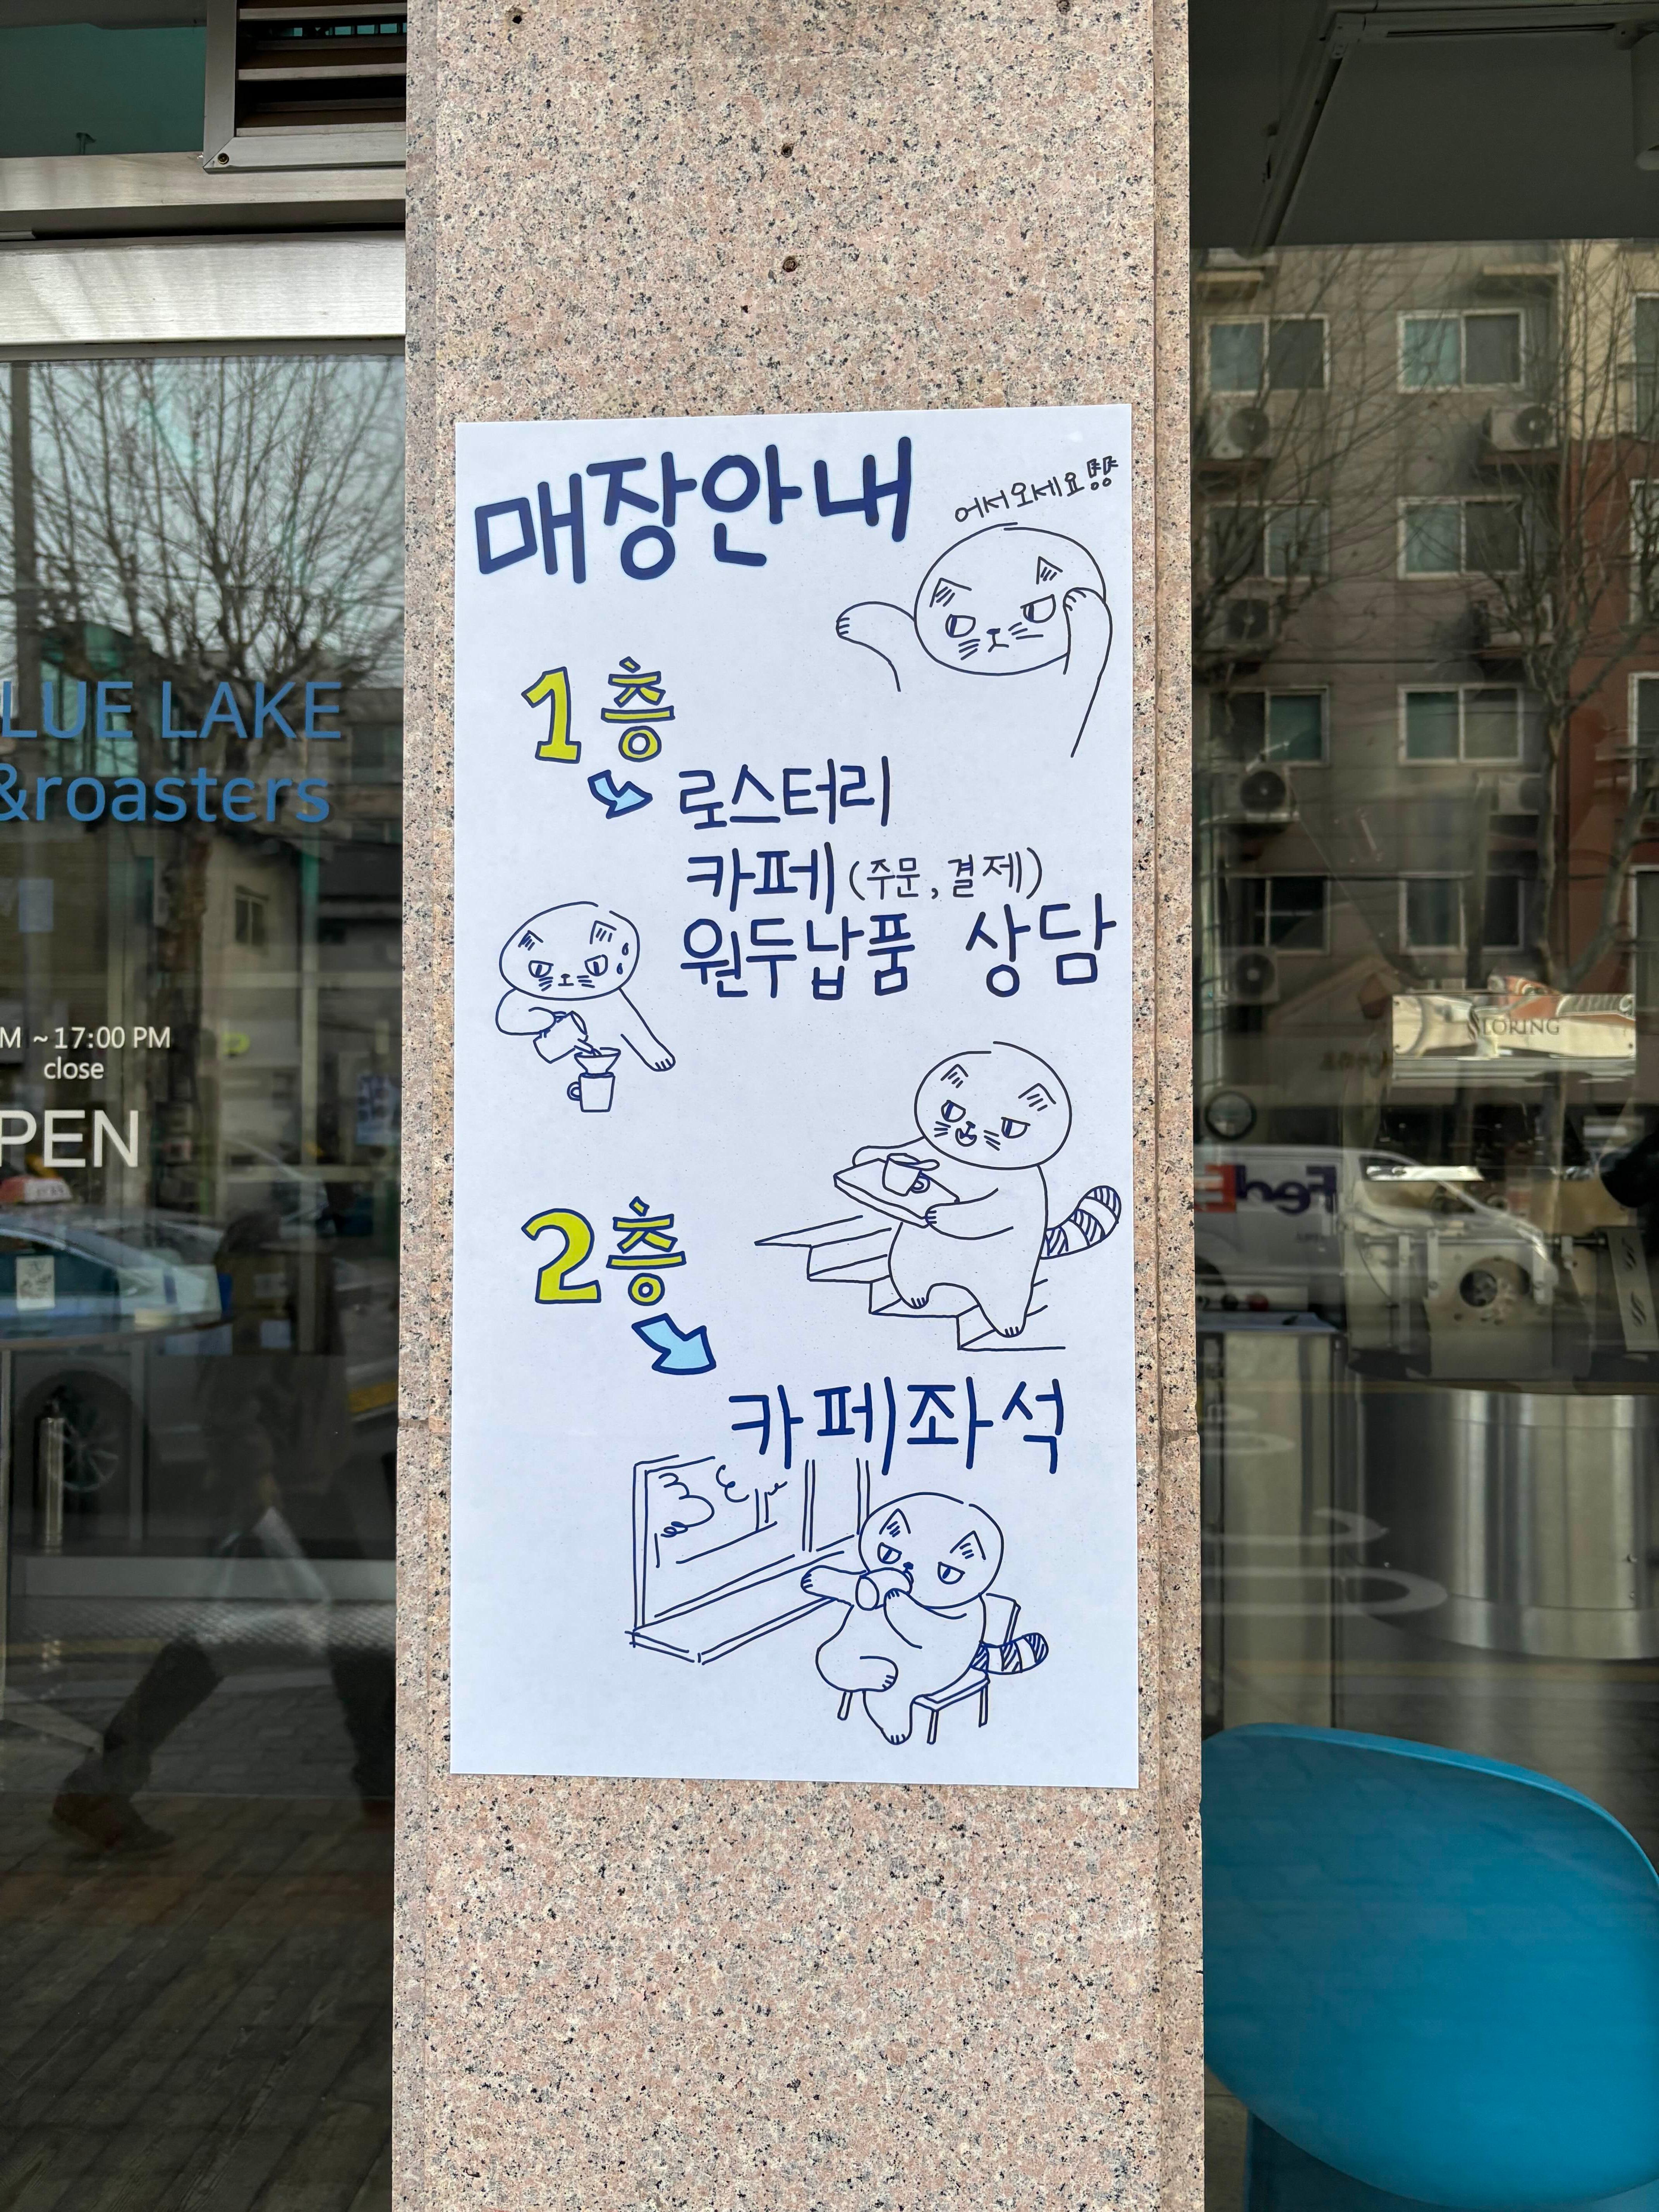 매장안내
어서오세요!!
1층
로스터리
카페 (주문, 결제)
원두납품 상담
2층
카페좌석
LUE LAKE
&roasters
M ~ 17:00 PM
close
PEN
LORING
FedEx